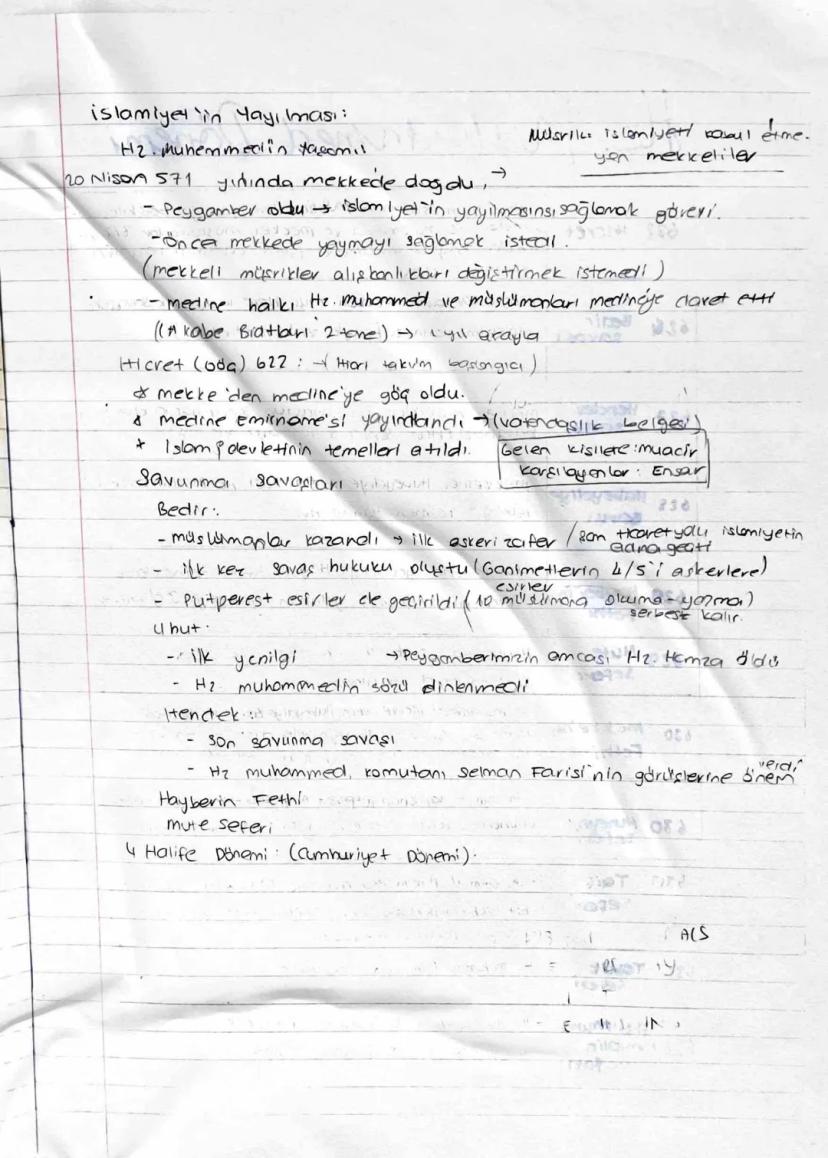 islamiyet'in Yayılması:
Müşrik: islamiyeti kabul etme.
yen mekkeliler
Hz. Muhemmed'in Yaşamı
20 Nisan 571 yılında mekkede doğdu, →
- Peygamber oldu → islamiyet'in yayılmasını sağlamak görevi.
- Önce mekkede yaymayı sağlamak istedi.
(mekkeli müşrikler alışkanlıkları değiştirmek istemedi)
- medine halkı Hz. muhammed ve müslümanları medine'ye davet etti
(Akabe Biatları 2 tane) → 1 yıl arayla
Hicret (Göç) 622 : → Hicri takvim başlangıcı)
* mekke'den medine'ye göç oldu.
* medine Emirname'si yayındlandı → (vatandaşlık belgesi)
* İslam Devletinin temelleri atıldı.
Gelen kişilere: muacir
karşılayanlar: Ensar
Savunma savaşları
Bedir:
- müslümanlar kazandı → ilk askeri zafer / Şam ticaret yolu islamiyetin
adına geçti
- ilk kez savaş hukuku oluştu (Ganimetlerin 4/5'i askerlere)
- Putperest esirler ele geçirildi (10 müslümana okuma-yazma)
esirler
serbest kalır.
Uhut:
- ilk yenilgi → Peygamberimizin amcası Hz. Hamza öldü
- Hz muhammedin sözü dinlenmedi
Hendek:
- son savunma savaşı
- Hz muhammed, komutanı Selman Farisi'nin görüşlerine önem verdi
Hayberin Fethi
mute seferi
4 Halife Dönemi: (Cumhuriyet Dönemi).